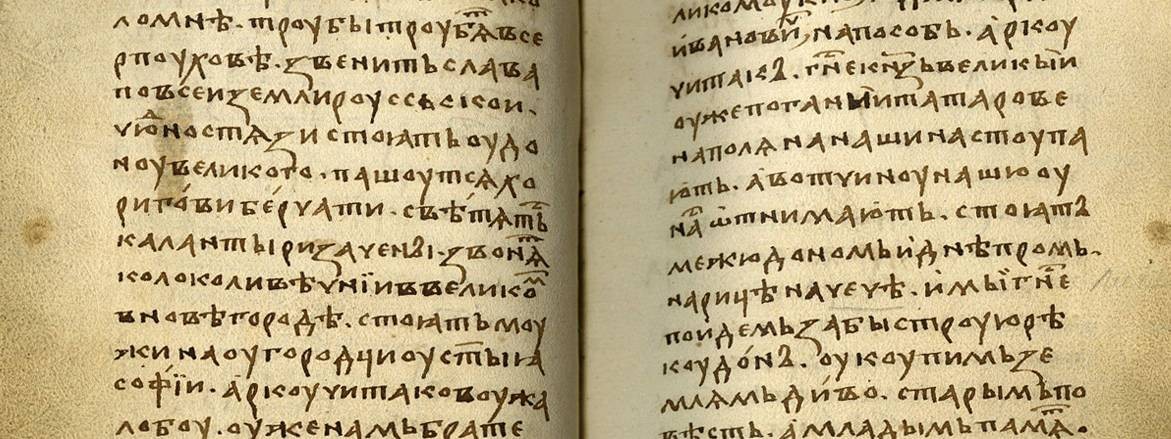 ломнѣ. троубы троубѧт всє
рпоуховѣ. ꙁвенить слава
по всєи ꙁемли роусⷭьскои.
чюⷣно стѧꙁи стоꙗть оу до
ноу великого. пашоутсѧ хо
риго́ви бе́рчати. свѣтѧтⸯ
каланты риꙁачены. ꙁвонѧⷮ
колоколи вѣчнїи в великоⷨ
в новѣгородѣ. стоꙗть моу
жи наоугородци оу ст҃ыꙗ
софїи. а҆ркоучи таково ужа
лобоу. оуже намъ брате
и҆вановиⷱ, на пособь. а҆ркоу
чи такъ. гн҃е кнѧꙁь великыи
оуже поганыи татарове
на полѧ на наши настоупа
ють. а҆ вотчиноу нашю оу
наⷭ ѿтнимають. стоꙗтъ
межю дономь и҆ днѣпромь.
на рицѣ на чечѣ. и҆ мы гн҃е
поидемь ꙁа быстроую рѣ
коу до́нъ. оукоупимь ꙁе
млѧмь ди҆во. старымъ по
вѣсть. а҆ младымь памѧⷮ.